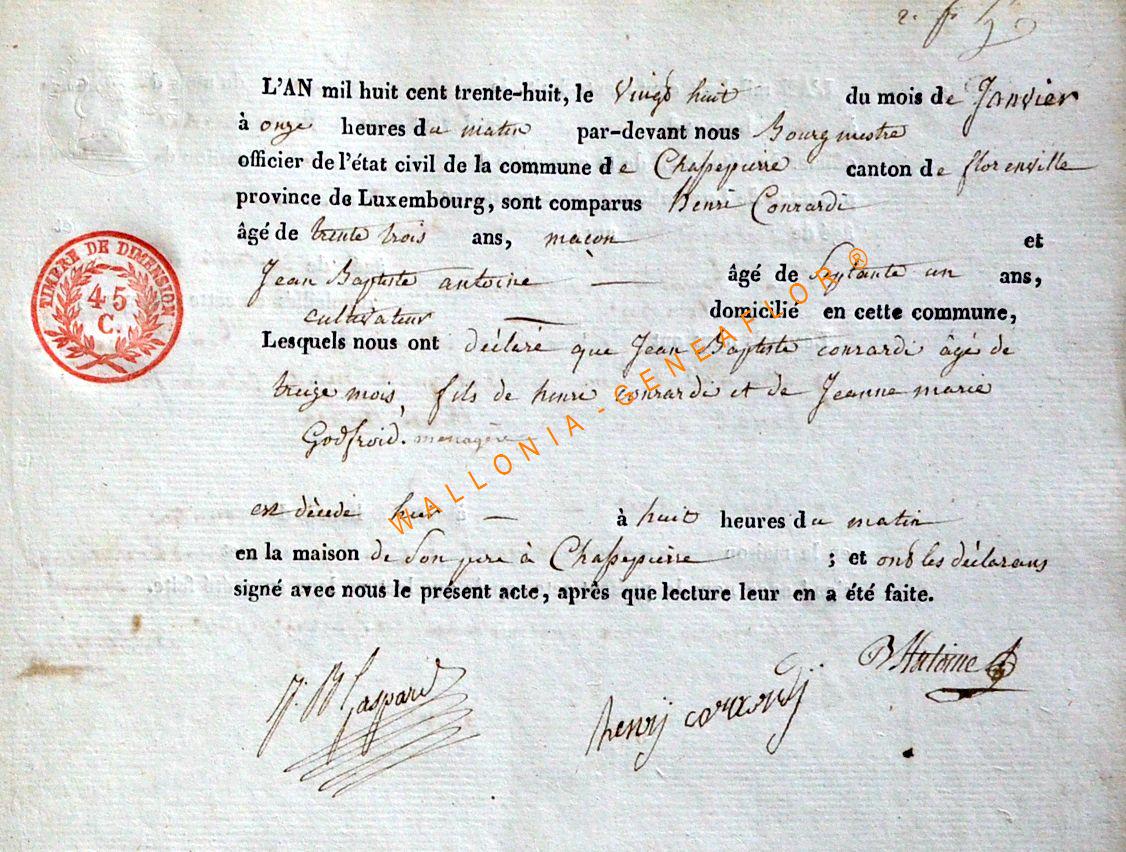 L'AN mil huit cent trente-huit, le Vingt huit du mois de Janvier
à onze heures du matin par-devant nous Bourgmestre
officier de l'état civil de la commune de Chassepierre canton de florenville
province de Luxembourg, sont comparus Henri Conrardi
âgé de trente trois ans, maçon et
Jean Baptiste antoine âgé de Septante un ans,
cultivateur domicilié en cette commune,
Lesquels nous ont déclaré que Jean Baptiste conrardi âgé de
treize mois, fils de henri conrardi et de Jeanne marie
Godfroid. menagère
est dècedé hier à huit heures du matin
en la maison de Son pere à Chassepierre ; et ont les déclarans
signé avec nous le présent acte, après que lecture leur en a été faite.
J. B Gaspard
henrij conrardij
B Antoine
TIMBRE DE DIMENSION
45
C.
WALLONIA-GENEAFLOR®